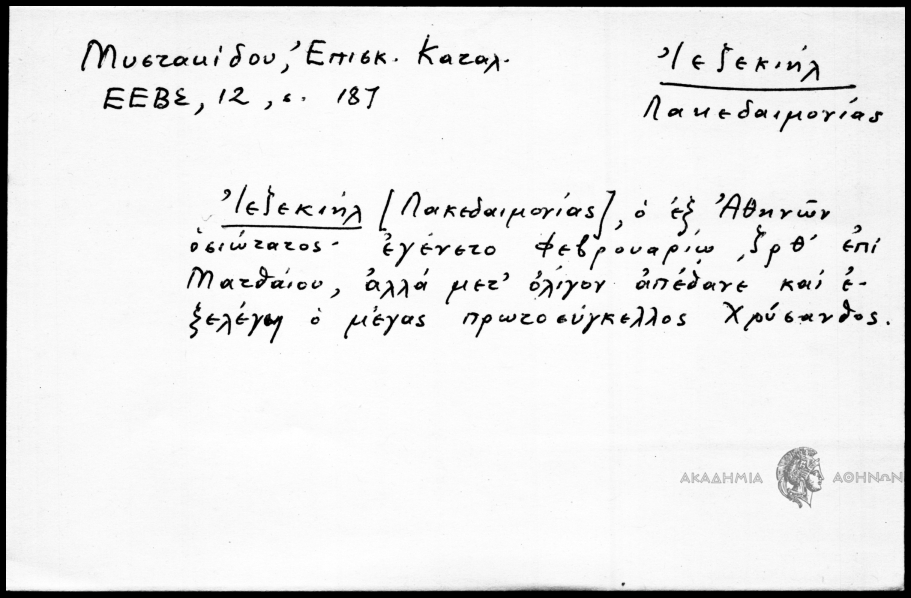 Μυστακίδου, Ἐπισκ. Καταλ.
ΕΕΒΣ, 12, σ. 187
Ἰεζεκιήλ
Λακεδαιμονίας
Ἰεζεκιήλ [Λακεδαιμονίας], ὁ ἐξ Ἀθηνῶν
ὁσιώτατος· ἐγένετο Φεβρουαρίῳ ͵ζρθ' ἐπί
Ματθαίου, ἀλλά μετ' ὀλίγον ἀπέθανε καί ἐ-
ξελέγη ὁ μέγας πρωτοσύγκελλος Χρύσανθος.
ΑΚΑΔΗΜΙΑ ΑΘΗΝΩΝ